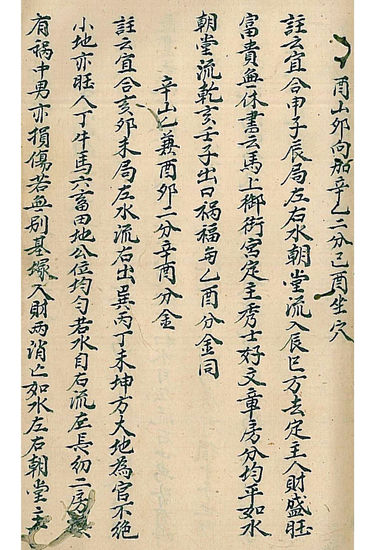 酉山卯向加辛乙二分己酉坐穴
註云宜合申子辰局左右水朝堂流入辰巳方去定主人財盛旺
富貴無休書云馬上御街宮定主秀士好文章房分均平如水
朝堂流乾亥壬子出口禍福与乙酉分金同
辛山乙兼酉卯二分辛酉分金
註云宜合亥卯未局左水流右出巽丙丁未坤方大地為官不絕
小地亦旺人丁牛馬六畜田地公位均勻若水自右流左長幼二房
有禍中男亦損傷若無別基塚人財兩消亡如水左右朝堂主